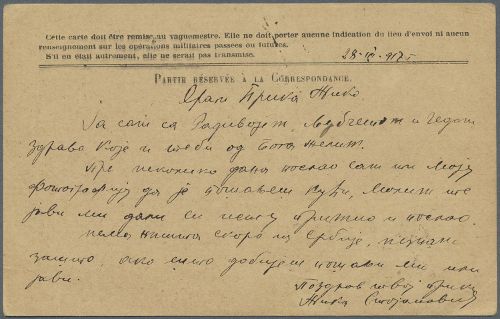 Cette carte doit être remise au vaguemestre. Elle ne doit porter aucune indication du lieu d'envoi ni aucun
renseignement sur les opérations militaires passées ou futures.
S'il en était autrement, elle ne serait pas transmise.
PARTIE RÉSERVÉE À LA CORRESPONDANCE.
Драги Прика Жико
Ја сам са Радивојем, Љубчетом и
здраво које и теби од Бога желим.
Пре неколико дана послао сам ти моју
фотографију да је пошаљеш кући, молим те
јави ми дали си исту примио и послао.
нема ништа скоро из Србије,
зашто, ако што добијеш пошаљи ми, или
јави.
поздрав твој прика
Жика Стојановић